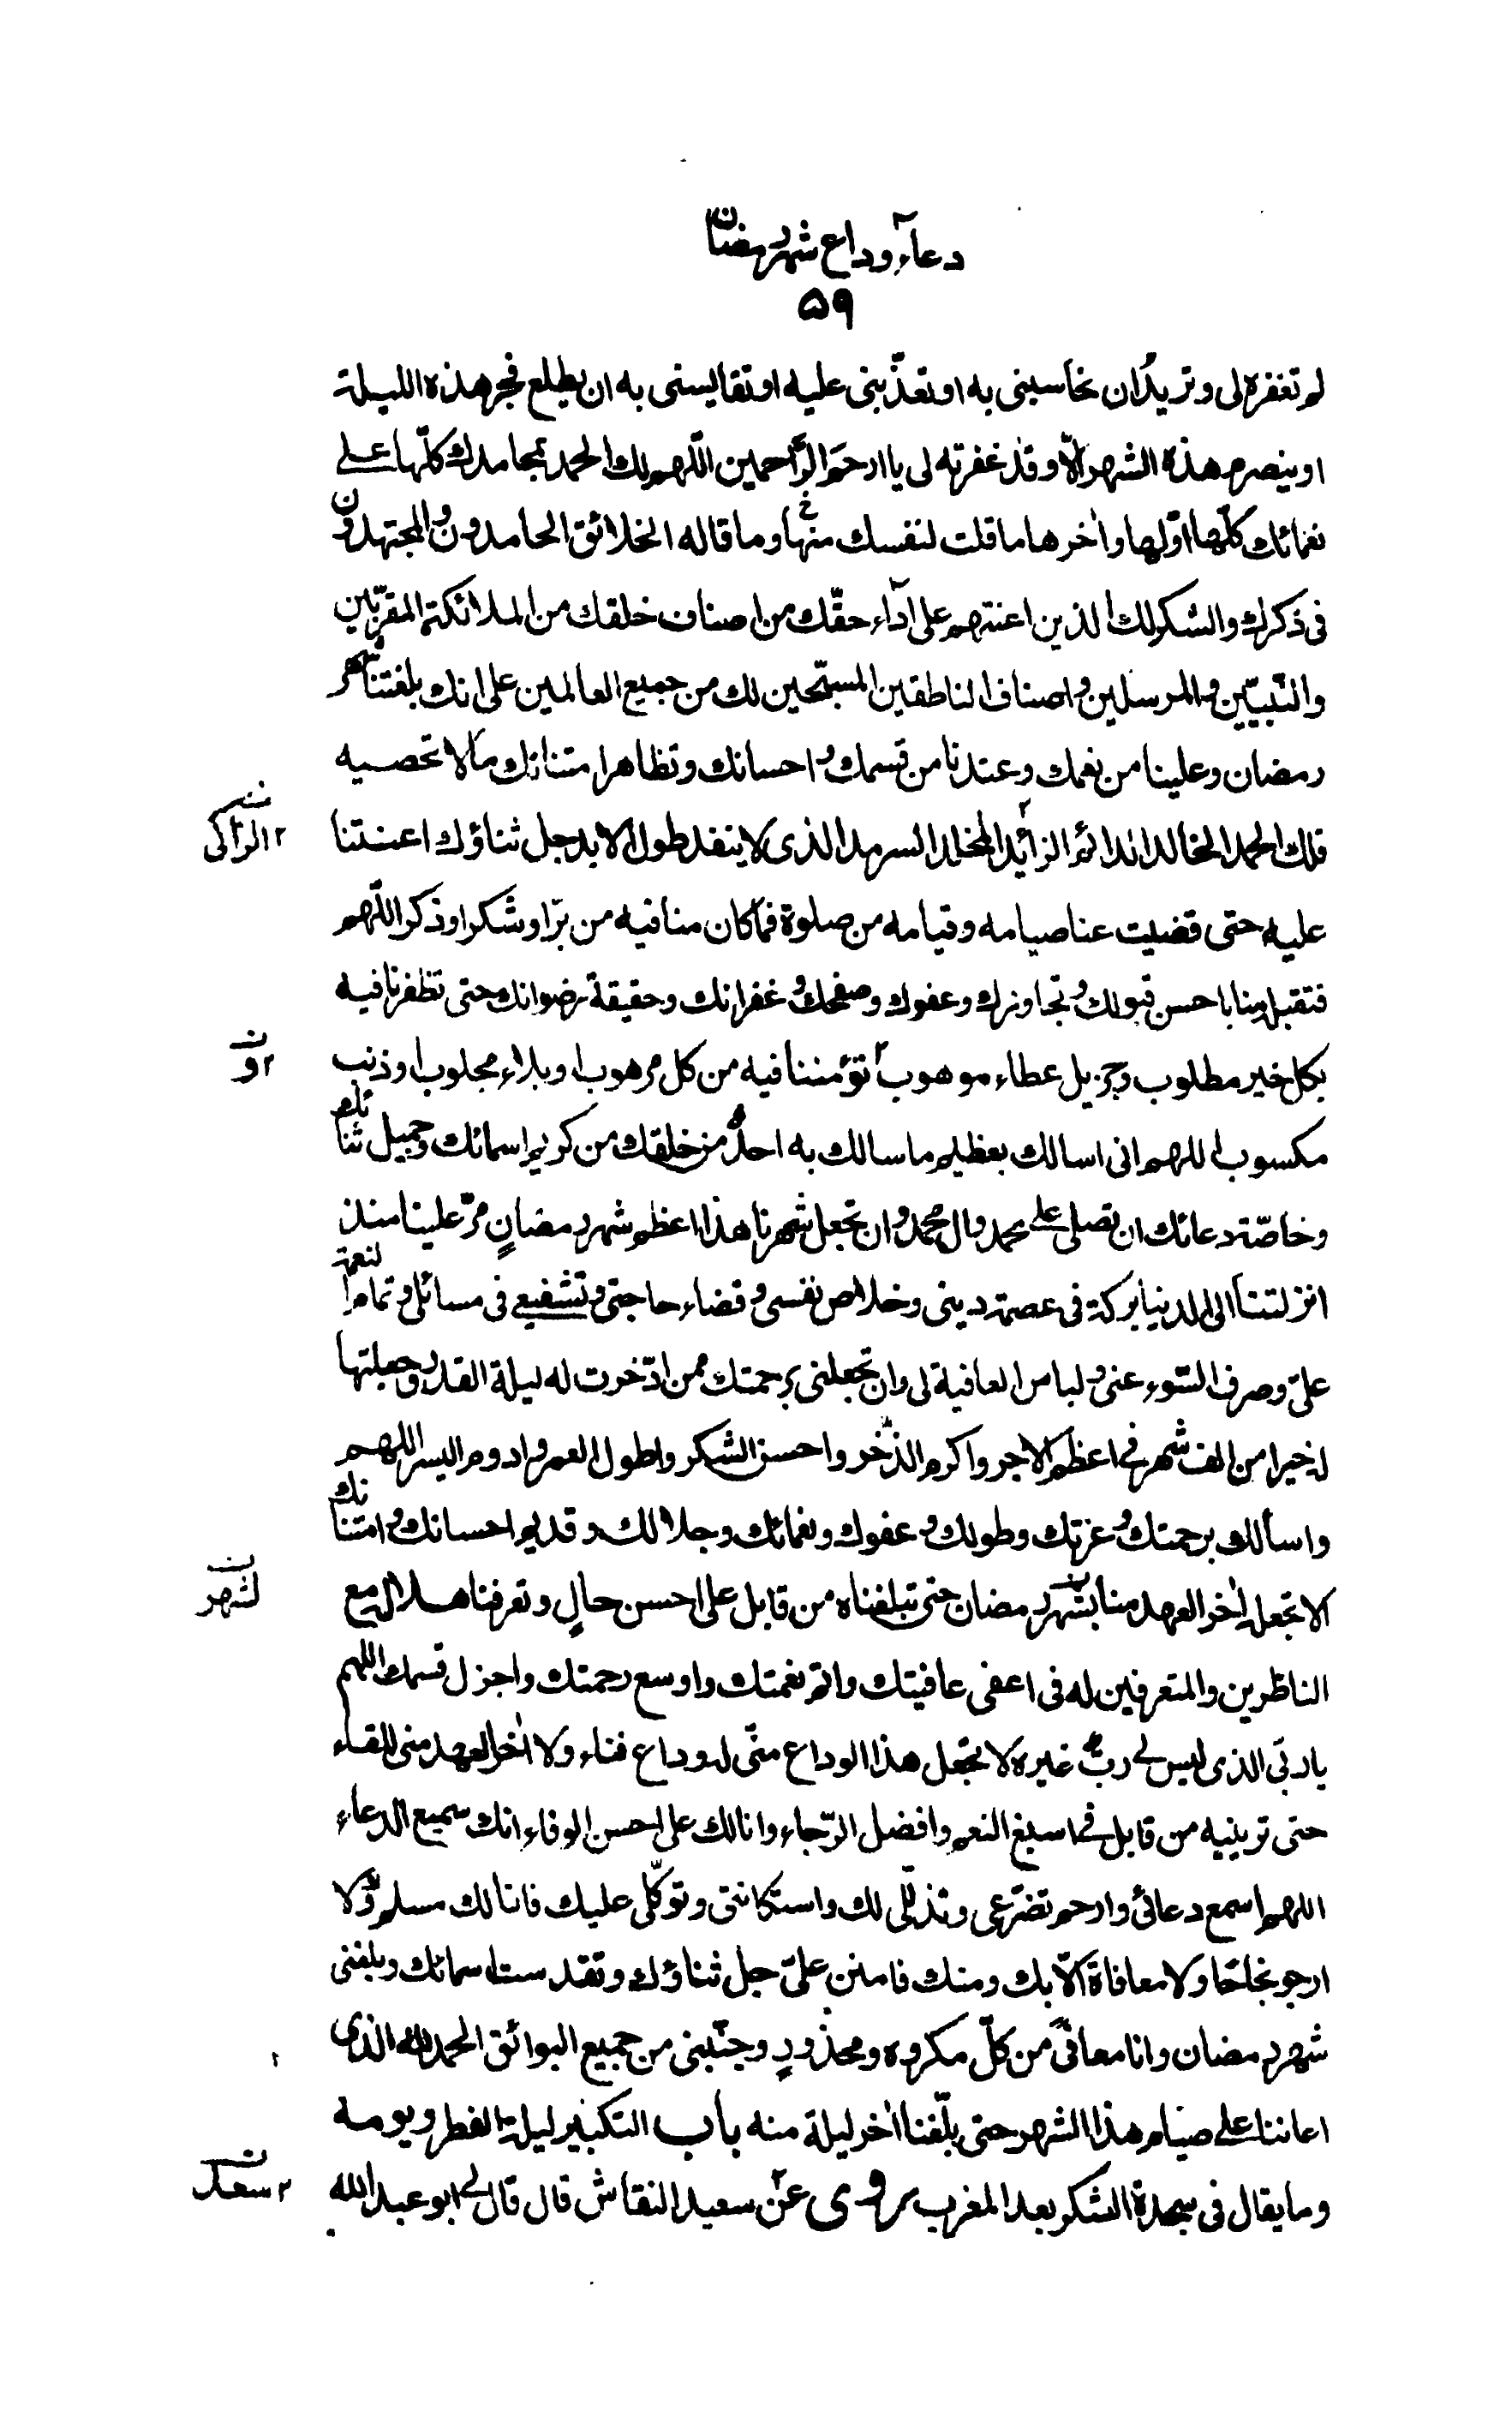 دعاء وداع شهر رمضان
۵۹
لم تغفره لی و ترید ان تحاسبنی به او تعذّبنی علیه او تقایسنی به ان یطلع فجر هذه اللیلة
او ینصرم هذه الشهر الّا و قد غفرته لی یا ارحم الرّاحمین اللّهم لك الحمد بمحامدك كلّها علی
نعمائك كلّها اوّلها و اٰخرها ما قلت لنفسك منها و ما قاله الخلائق الحامدون و المجتهدون
فی ذكرك و الشكر لك الذین اعنتهم علی اداء حقّك من اصناف خلقك من الملائكة المقرّبین
و النّبییّن و المرسلین و اصناف الناطقین المسبّحین لك من جمیع العالمین علی انك بلغتنا شهر
رمضان و علینا من نعمك و عندنا من قسمك و احسانك و تظاهر امتنانك ما لا تحصیه
فلك الحمد الخالد الدائم الزائد المخلد السرمد الذی لا ینفد طول الابد جل ثناؤك اعنتنا
۲ الراكی
علیه حتی قضیت عنا صیامه و قیامه من صلوة فما كان منا فیه من برّ او شكر او ذكر اللّهم
فتقبل منا باحسن قبولك و تجاوزك و عفوك و صفحك و غفرانك و حقیقة رضوانك حتی تظفرنا فیه
بكل خیر مطلوب و جزیل عطاء موهوب تؤمننا فیه من كل مرهوب او بلاء مجلوب او ذنب
۲ و ن
مكسوب اللهم انی اسالك بعظیم ما سالك به احدٌ من خلقك من كریم اسمائك و جمیل ثنائك
و خاصّة دعائك ان تصلی علی محمد و ال محمد و ان تجعل شهرنا هذا اعظم شهر رمضانٍ مرّ علینا منذ
انزلتنا الی الدنیا بركة فی عصمة دینی و خلاص نفسی و قضاء حاجتی و تشفیعی فی مسائلی و تمام النعمة
علیّ و صرف السّوء عنی و لباس العافیة لی و ان تجعلنی برحمتك ممن ادّخرت له لیلة القدر و جعلتها
له خیرا من الف شهر فی اعظم الاجر و اكرم الذّخر و احسن الشكر و اطول العمر و ادوم الیسر اللهم
و اسألك برحمتك و عزتك و طولك و عفوك و نعمائك و جلالك و قدیم احسانك و امتنانك
الا تجعله اٰخر العهد منا بشهر رمضان حتی تبلغناه من قابل علی احسن حالٍ و تعرفنا هلاله مع
ن لشهر
الناظرین و المتعرفین له فی اعفی عافیتك و اتم نعمتك و اوسع رحمتك و اجزل قسمك اللهم
یا ربّی الذی لیس لی ربٌّ غیره لا تجعل هذا الوداع منّی له وداع فناء و لا اٰخر العهد منی للقاء
حتی ترینیه من قابل فی اسبغ النعم و افضل الرّجاء و انا لك علی احسن الوفاء انك سمیع الدعاء
اللهم اسمع دعائی و ارحم تضرّعی و تذلّلی لك و استكانتی و توكّلی علیك فانا لك مسلم و لا
ارجو نجاحًا و لا معافاة الّا بك و منك فامنن علیّ جل ثناؤك و تقدست اسمائك و بلغنی
شهر رمضان و انا معافًی من كلّ مكروه و محذورٍ و جنّبنی من جمیع البوائق الحمد لله الذی
اعاننا علی صیام هذا الشهر حتی بلّغنا اٰخر لیلة منه باب التكبیر لیلة الفطر و یومه
و ما یقال فی سجدة الشكر بعد المغرب روی عن سعید النقاش قال قال لی ابو عبد الله
۲ سعد ن